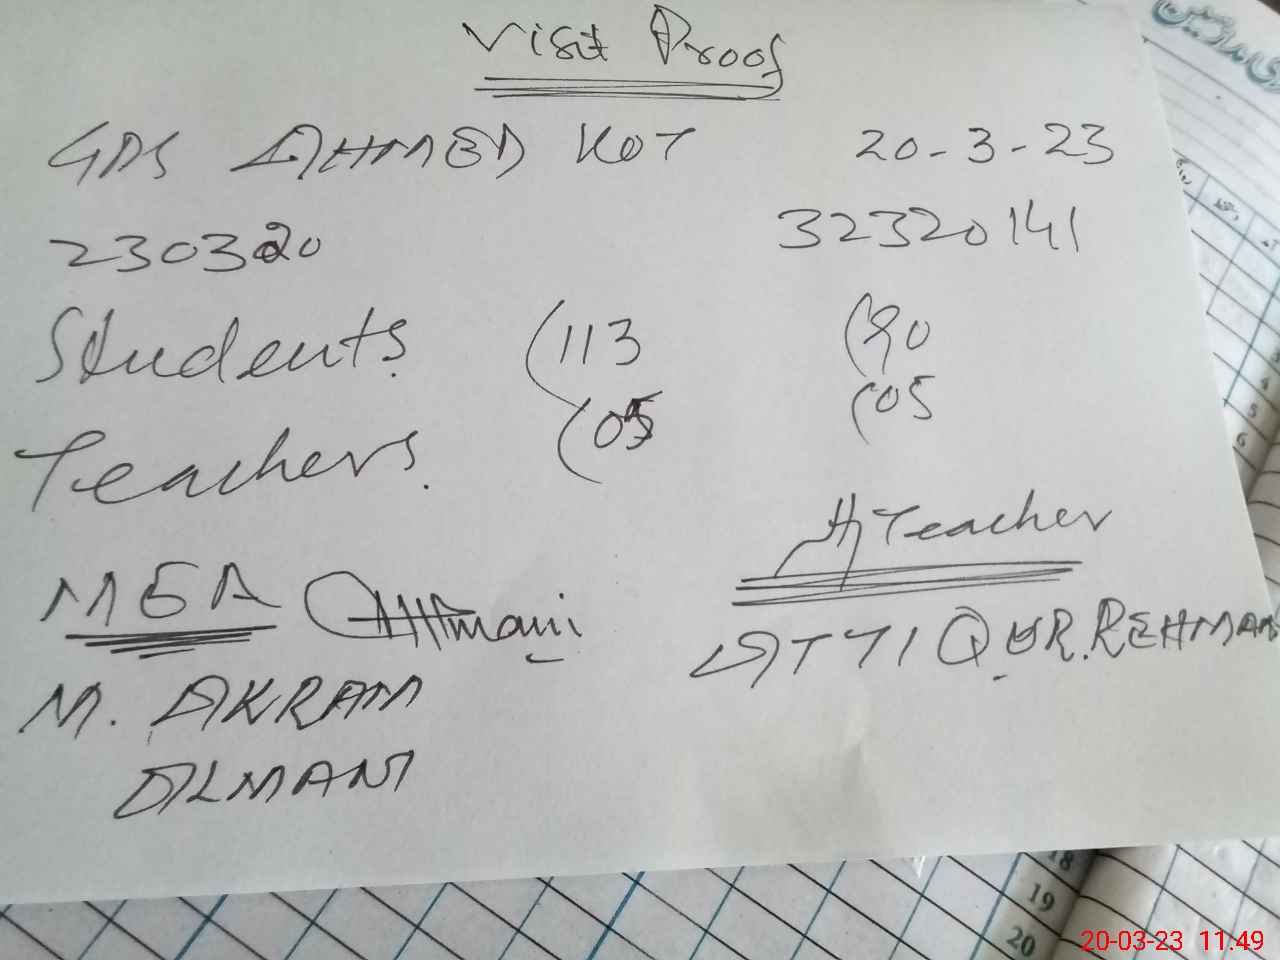 Visit Proof
GPS AHMED KOT 20-3-23
23030320 32320141
Students. (113 (90
Teachers. (05 (05
H/Teacher
MEA
ATTIQ UR.REHMAN
M. AKRAM
ALMANI
4
5
6
18
19
20
20-03-23 11.49